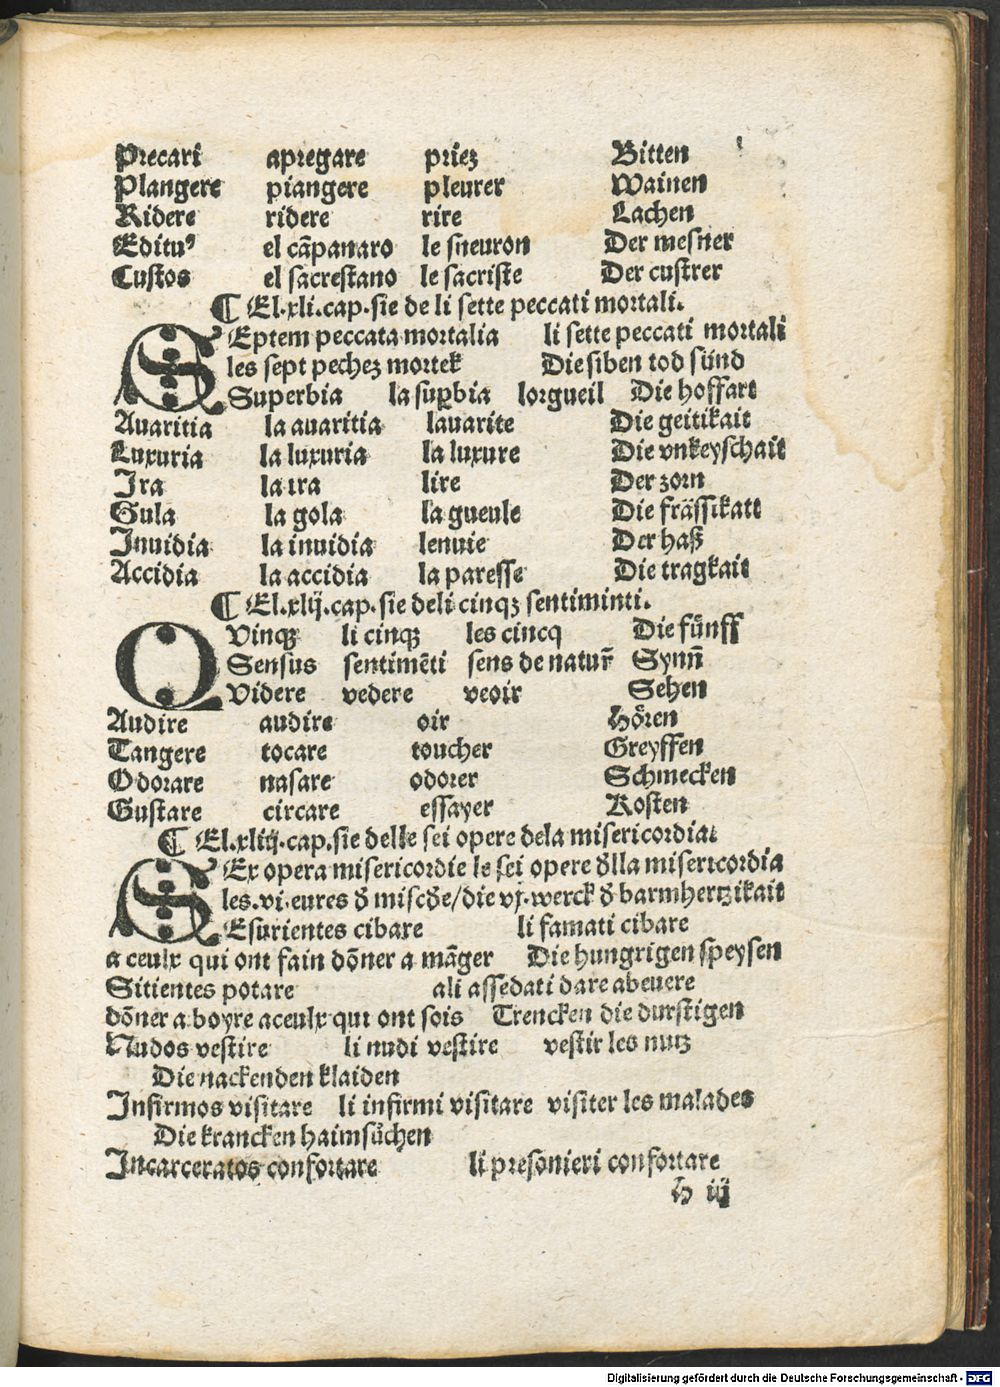 Precari apregare priez Bitten
Plangere piangere pleurer Wainen
Ridere ridere rire Lachen
Edituꝰ el cãpanaro le sneuron Der mesner
Custos el sacrestano le sacriste Der custrer
¶ El.xli.cap.sie de li sette peccati mortali.
SEptem peccata mortalia li sette peccati mortali
les sept pechez mortek Die siben tod sünd
Superbia la suꝑbia lorgueil Die hoffart
Auaritia la auaritia lauarite Die geitikait
Luxuria la luxuria la luxure Die vnkeyschait
Ira la ira lire Der zorn
Gula la gola la gueule Die frässikait
Inuidia la inuidia lenuie Der haß
Accidia la accidia la paresse Die tragkait
¶ El.xlij.cap.sie deli cinqz sentiminti.
QVinqz li cinqz les cincq Die fünff
Sensus sentimẽti sens de natur̃ Synñ
Videre vedere veoir Sehen
Audire audire oir Hören
Tangere tocare toucher Greyffen
Odorare nasare odorer Schmecken
Gustare circare essayer Kosten
¶ El.xliij.cap.sie delle sei opere dela misericordia:
SEx opera misericordie le sei opere dlla misericordia
les.vi.eures d miscde/die vj.werck d barmhertzikait
Esurientes cibare li famati cibare
a ceulx qui ont fain dõner a mãger Die hungrigen speysen
Sitientes potare ali assedati dare abeuere
dõner a boyre aceulx qui ont sois Trencken die durstigen
Nudos vestire li nudi vestire vestir les nutz
Die nackenden klaiden
Infirmos visitare li infirmi visitare visiter les malades
Die krancken haimsuͦchen
Incarceratos confortare li presonieri confortare
h iij
Digitalisierung gefördert durch die Deutsche Forschungsgemeinschaft - DFG